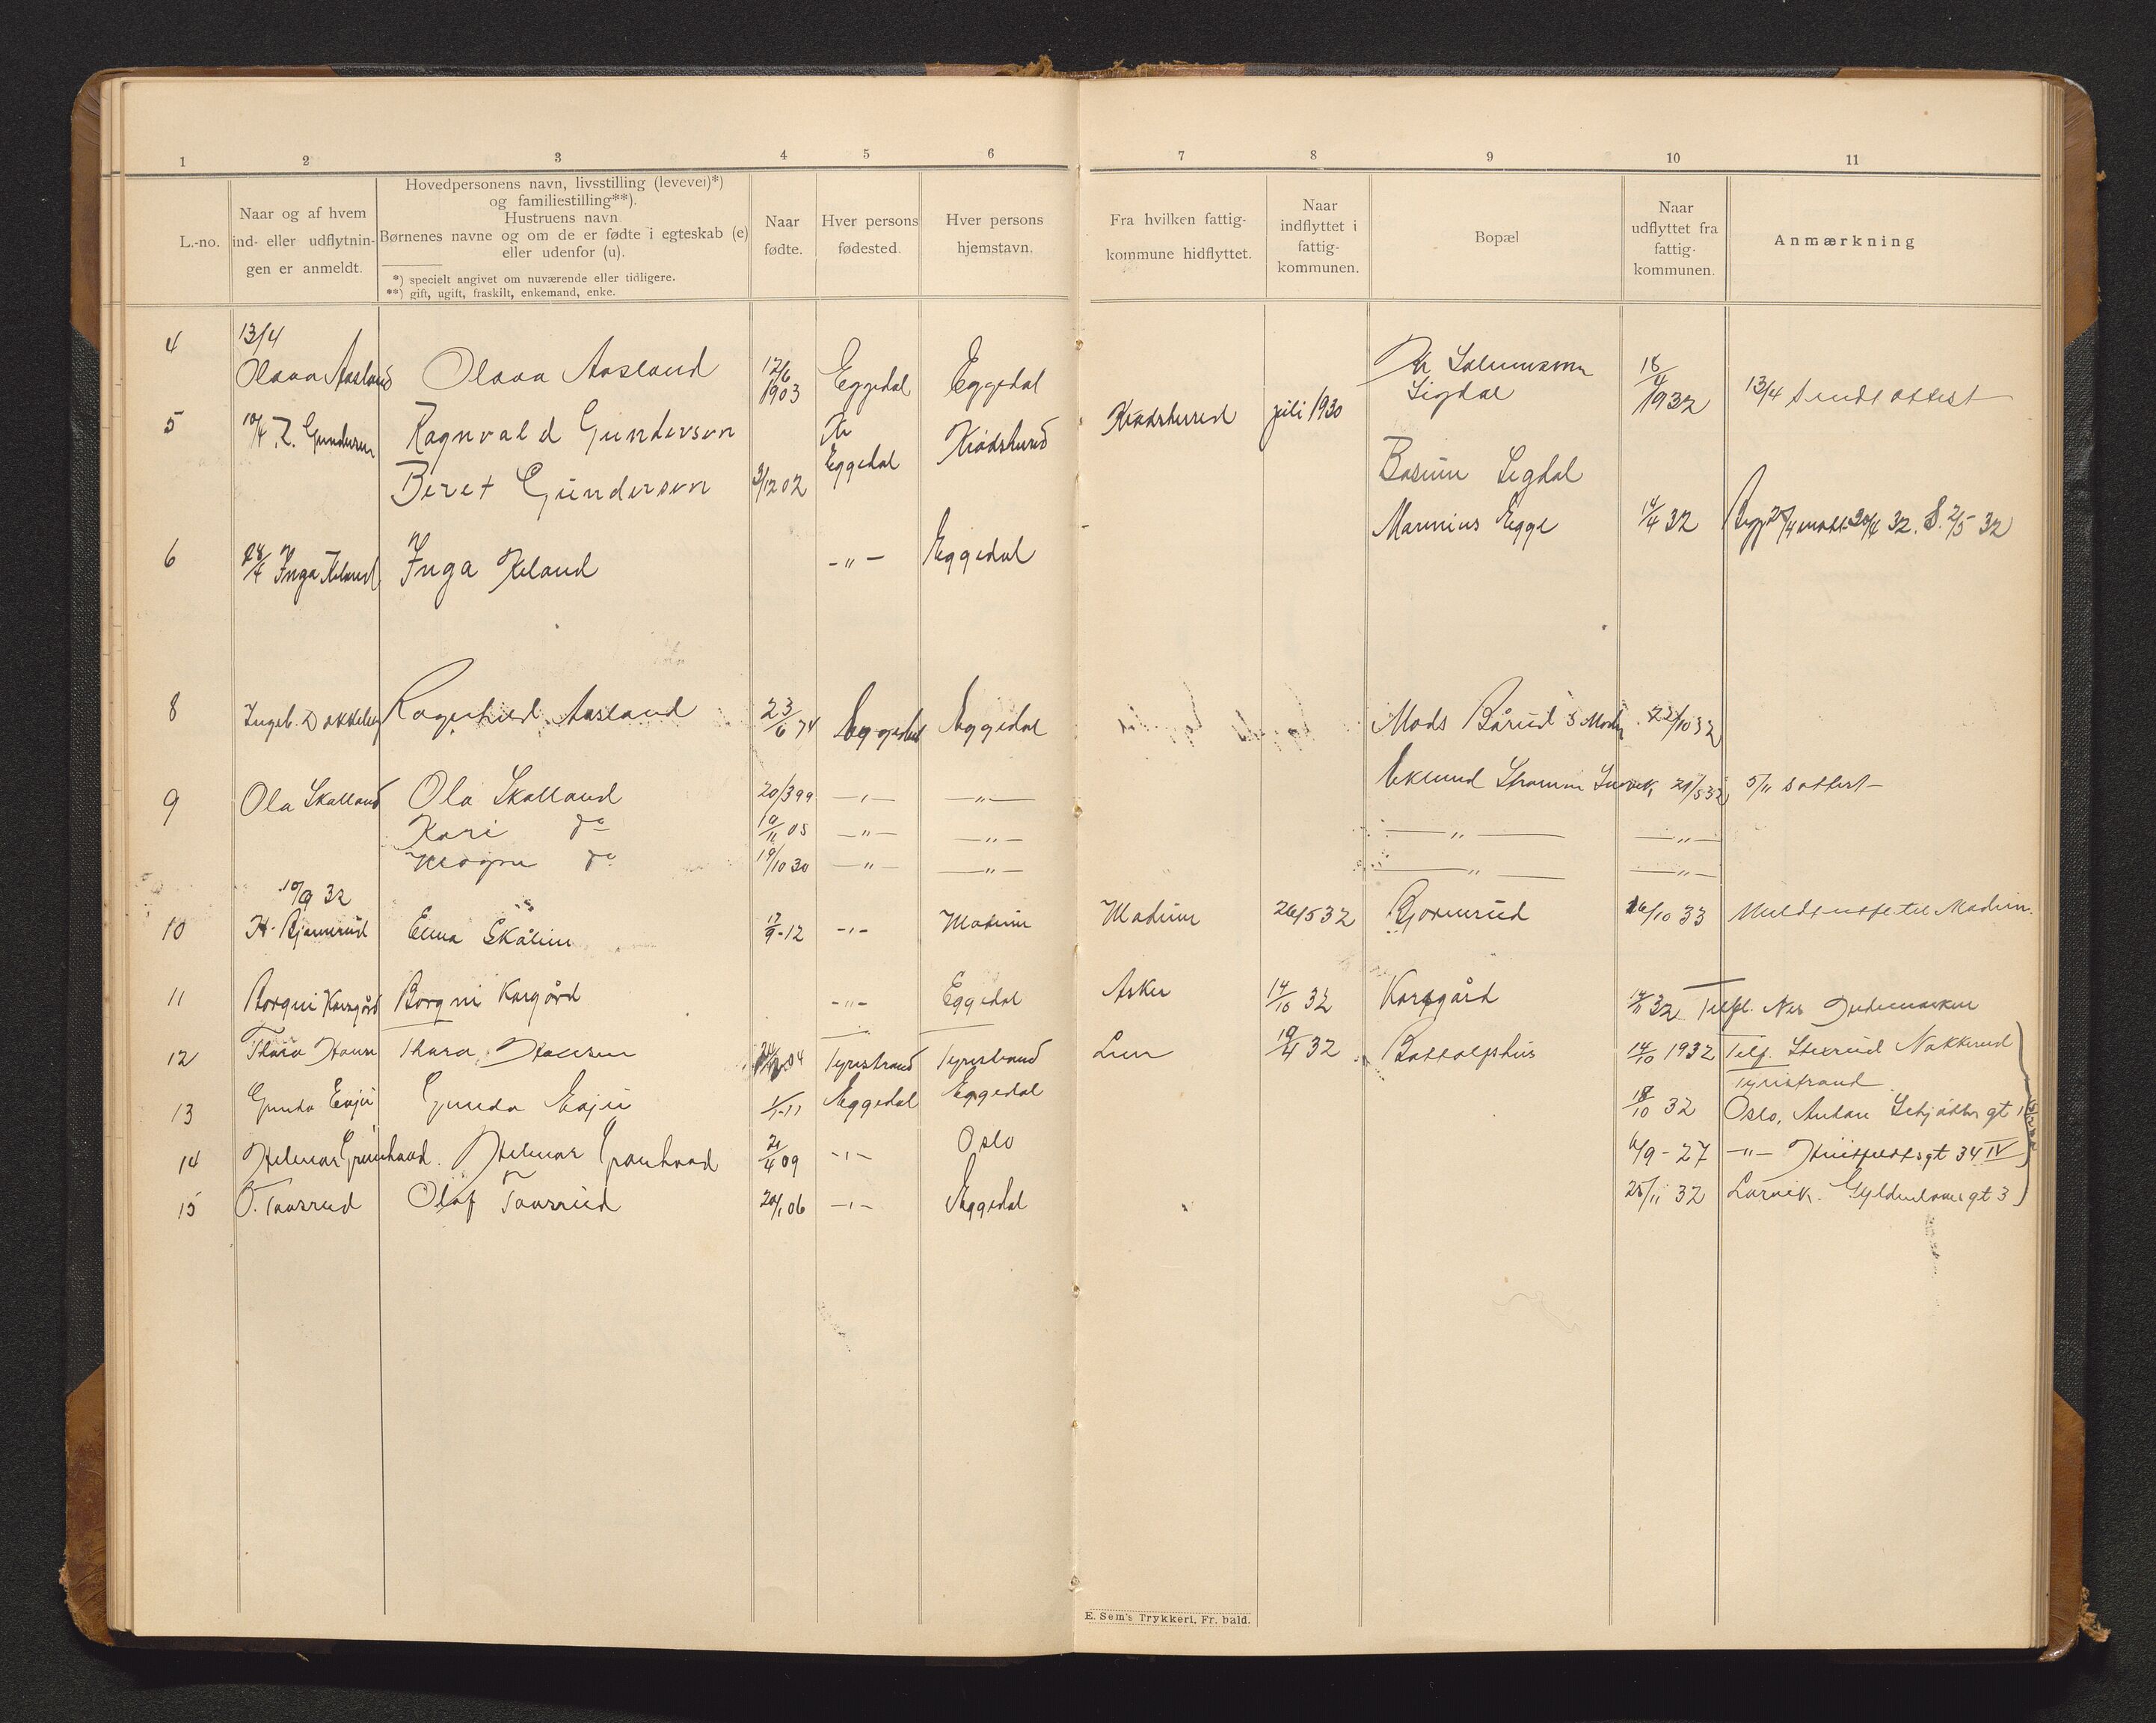 1 2 3 4 5 6 7 8 9 10 11
L.-no.
Naar og af hvem
ind- eller udflytnin-
gen er anmeldt.
Hovedpersonens navn, livsstilling (levevei)*)
og familiestilling**).
Hustruens navn
Børnenes navne og om de er fødte i egteskab (e)
eller udenfor (u).
*) specielt angivet om nuværende eller tidligere.
**) gift, ugift, fraskilt, enkemand, enke.
Naar
fødte.
Hver persons
fødested.
Hver persons
hjemstavn.
Fra hvilken fattig-
kommune hidflyttet.
Naar
indflyttet i
fattig-
kommunen.
Bopæl
Naar
udflyttet fra
fattig-
kommunen.
Anmærkning
4 13/4
Olava Aasland Olava Aasland 12/6 1903 Eggedal Eggedal Sigdal 18/4 1932 13/4 sendt attest
5 10/4 R. Gundersen Ragnvald Gunderson Krødsherred Krødsherred juli 1930
Beret Gunderson 3/12 02 Eggedal Sigdal
6 28/4 Inga Kland Inga Kland -"- Eggedal Marinius Egge 14/4 32
8 Ingeb. Dokkeberg Ragnhild Aasland 23/6 74 Eggedal Eggedal Mads Bårud 22/10 32
9 Ola Skalland Ola Skalland 20/3 99 -"- -"- Eklund 21/5 32 5/11 s attest
Kari do 10/11 05 -"- -"- -"- -"-
Magne do 19/10 30 -"- -"- -"- -"-
10/9 32
10 H. Bjørnerud Emma Skålim 17/9-12 -"- Modum Modum 26/5 32 Bjørnerud 16/10 33 Modum.
11 Borgni Karsgård Borgni Kargård -"- Eggedal Asker 14/10 32 Karsgård 14/11 32 Tilfl. Nes Hedemarken
12 Thora Hansen Thora Hansen 04 Tyristrand Tyristrand Lier 19/4 32 Bottolphus 14/10 1932 Tilf. Nakkerud
Tyristrand
13 Gunda Enju Gunda Enju 1/1-11 Eggedal Eggedal 18/10 32 Oslo, Anton Schjøtts gt 1
14 Hilmar Grønhovd. Hilmar Grønhovd 21/4 09 -"- Oslo 6/9-27 -"- Huitfeldtsgt 34 IV
15 O. Taasrud Olaf Taasrud 20/1 06 -"- Eggedal 25/11 32 Larvik. Gyldenløves gt 3
E. Sem's Trykkeri, Fr. hald.